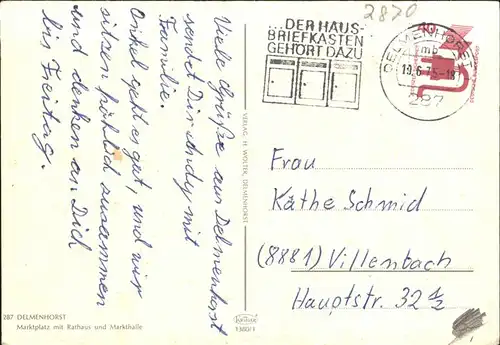 Viele Grüße aus Delmenhorst
sendet Dir Andy mit
Familie.
Onkel geht es gut, und wir
sitzen fröhlich zusammen
und denken an Dich
bis Freitag.
287 DELMENHORST
Marktplatz mit Rathaus und Markthalle
VERLAG H. WOLTER, DELMENHORST
Krüger
1380/1
2870
...DER HAUS-
BRIEFKASTEN
GEHÖRT DAZU
DELMENHORST 1
mb
19.6.75-18
287
40
Frau
Käthe Schmid
(8881) Villenbach
Hauptstr. 32 1/2